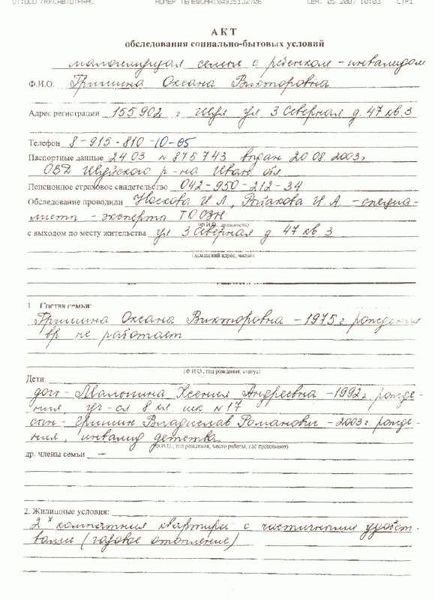 АКТ
обследования социально-бытовых условий
малоимущая семья с ребенком-инвалидом
Ф.И.О. Гришина Оксана Викторовна
Адрес регистрации 155902 г Шуя ул 3 Северная д. 47 кв. 3
Телефон 8-915-810-10-65
Паспортные данные 24 03 № 875743 выдан 20 08 2003г
ОВД Шуйского р-на Иван. обл
Пенсионное страховое свидетельство 042-950-212-34
Обследование проводили Носкова И Л, И А - специа-
листы-эксперты ТОСЗН
с выходом по месту жительства ул 3 Северная д 47 кв 3
1. Состав семьи:
Гришина Оксана Викторовна - 1975 г рождения
вр не работает
(Ф.И.О., год рождения, статус)
Дети:
дочь - Малышина Ксения Андреевна - 1992 г. рожде-
ния, уч-ся 8 кл шк № 17
сын - Гришин Владислав Романович - 2003 г рожде-
ния, инвалид детства.
др. члены семьи –
2. Жилищные условия:
2х комнатная квартира с частичными удобст-
вами (газовое отопление)